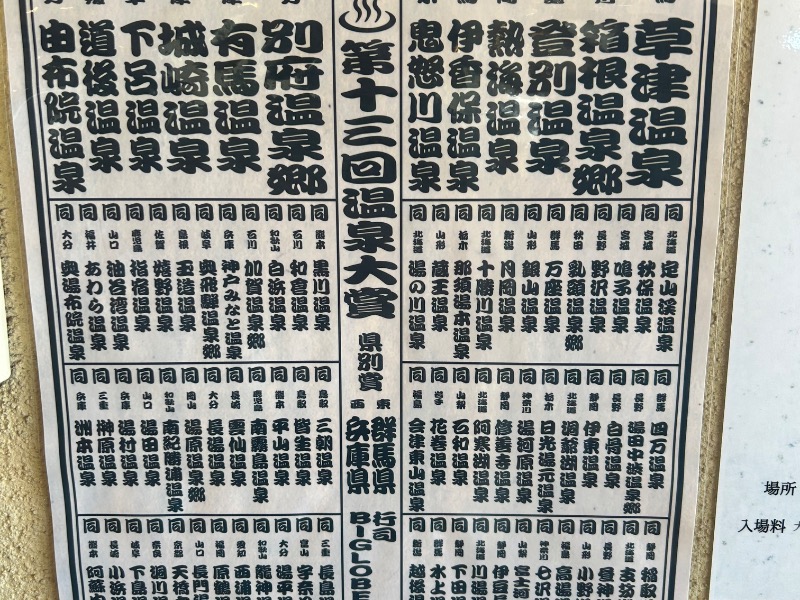 草津温泉
箱根温泉郷
登別温泉
熱海温泉
伊香保温泉
鬼怒川温泉
同 北海道 定山渓温泉
同 宮城 秋保温泉
同 宮城 鳴子温泉
同 長野 野沢温泉
同 秋田 乳頭温泉郷
同 群馬 万座温泉
同 山形 銀山温泉
同 新潟 月岡温泉
同 北海道 十勝川温泉
同 栃木 那須湯本温泉
同 山形 蔵王温泉
同 北海道 湯の川温泉
同 群馬 四万温泉
同 長野 湯田中渋温泉郷
同 長野 白骨温泉
同 静岡 伊東温泉
同 北海道 洞爺湖温泉
同 栃木 日光湯元温泉
同 神奈川 湯河原温泉
同 静岡 修善寺温泉
同 北海道 阿寒湖温泉
同 山梨 石和温泉
同 岩手 花巻温泉
同 福島 会津東山温泉
同 静岡 稲取
同 北海道
同 長野 昼神
同 山形 小野
同 福島 高湯
同 神奈川 七沢
同 山梨 富士河
同 静岡 伊豆
同 北海道 川湯
同 静岡 下田
同 群馬 水上
同 新潟 越後
第十三回温泉大賞
県別賞
東 群馬県
西 兵庫県
行司
BIGLOBE
別府温泉郷
有馬温泉
城崎温泉
下呂温泉
道後温泉
由布院温泉
同 熊本 黒川温泉
同 石川 和倉温泉
同 和歌山 白浜温泉
同 石川 加賀温泉郷
同 兵庫 神戸みなと温泉
同 岐阜 奥飛騨温泉郷
同 島根 玉造温泉
同 佐賀 嬉野温泉
同 鹿児島 指宿温泉
同 山口 油谷湾温泉
同 福井 あわら温泉
同 大分 奥湯布院温泉
同 鳥取 三朝温泉
同 鳥取 皆生温泉
同 熊本 平山温泉
同 鹿児島 南霧島温泉
同 長崎 雲仙温泉
同 大分 長湯温泉
同 岡山 湯原温泉郷
同 和歌山 南紀勝浦温泉
同 山口 湯田温泉
同 兵庫 湯村温泉
同 三重 榊原温泉
同 兵庫 洲本温泉
同 三重 長島温
同 富山 宇奈
同 大分 湯平
同 和歌山 龍神
同 愛知 西浦
同 福岡 原鶴
同 山口 長門
同 京都 天橋
同 奈良 洞川
同 岐阜 下島
同 長崎 小浜
同 熊本 阿蘇
場所
入場料